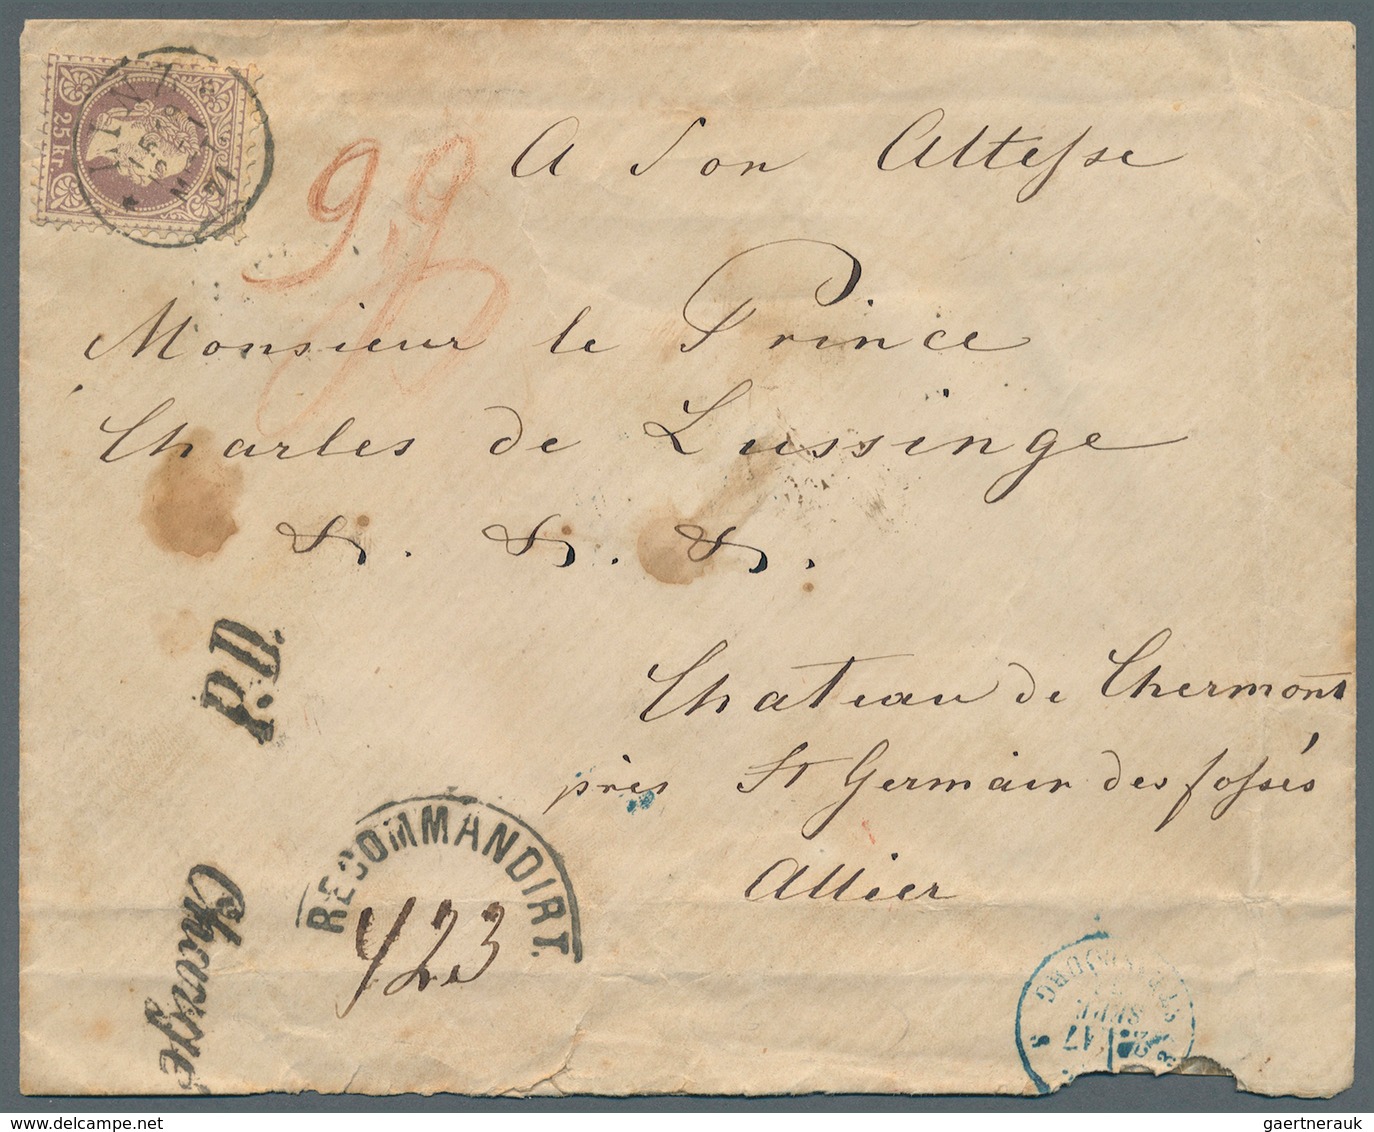 25 kr
LINZ
15 9
71
A Son Altesse
Monsieur le Prince
Charles de Lussinge
Chateau de Chermont
près St Germain des fossés
Allier
P.D.
RECOMMANDIRT.
423
Chargé
SEPT
17
delcampe.net
gaertnerauk